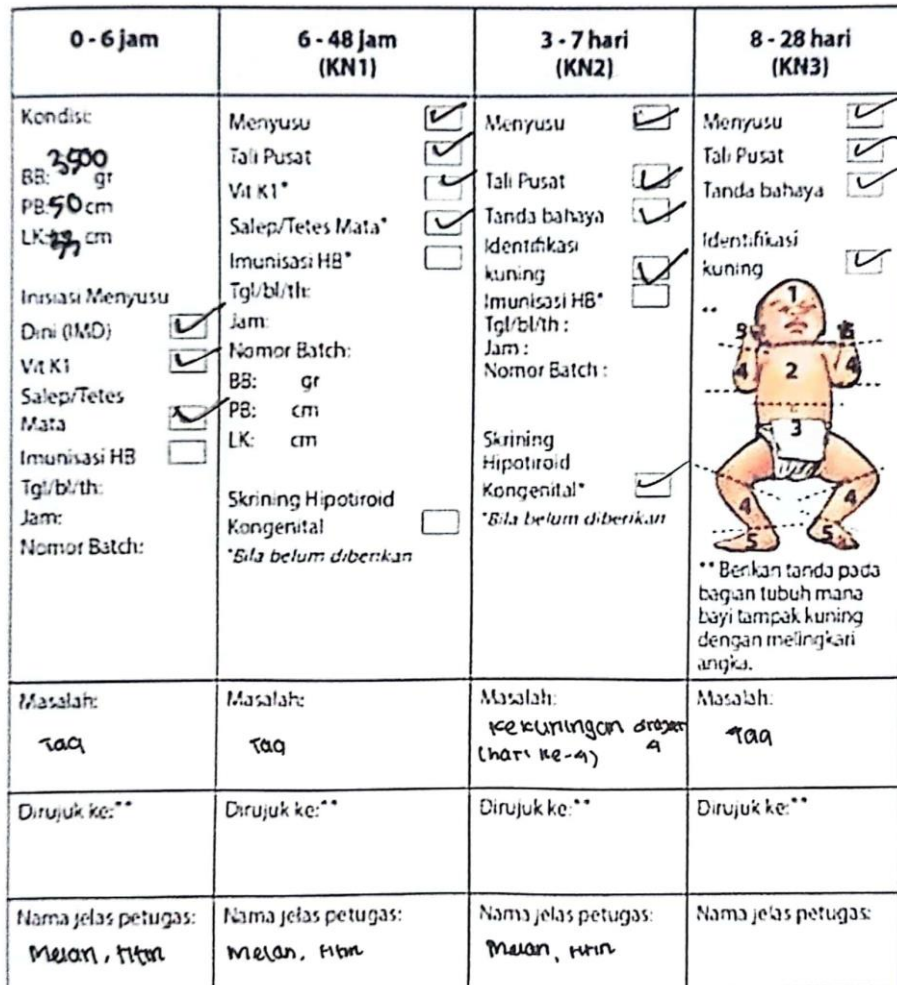 0 - 6 jam
6 - 48 jam
(KN1)
3 - 7 hari
(KN2)
8 - 28 hari
(KN3)
Kondisi:
BB: 3500 gr
PB: 50 cm
LK: cm
Inisiasi Menyusu
Dini (IMD)
Vit K1
Salep/Tetes
Mata
Imunisasi HB
Tgl/bl/th:
Jam:
Nomor Batch:
Menyusu
Tali Pusat
Vit K1*
Salep/Tetes Mata*
Imunisasi HB*
Tgl/bl/th:
Jam:
Nomor Batch:
BB: gr
PB: cm
LK: cm
Skrining Hipotiroid
Kongenital
*Bila belum diberikan
Menyusu
Tali Pusat
Tanda bahaya
Identifikasi
kuning
Imunisasi HB*
Tgl/bl/th :
Jam :
Nomor Batch :
Skrining
Hipotiroid
Kongenital*
*Bila belum diberikan
Menyusu
Tali Pusat
Tanda bahaya
Identifikasi
kuning
**
1
5 5
4 2 4
3
4 4
5 5
** Berikan tanda pada
bagian tubuh mana
bayi tampak kuning
dengan melingkari
angka.
Masalah:
Taa
Masalah:
Taa
Masalah:
Kekuningan
(hari ke-4) 4
Masalah:
Taa
Dirujuk ke:**
Dirujuk ke:**
Dirujuk ke:**
Dirujuk ke:**
Nama jelas petugas:
Melan, Titin
Nama jelas petugas:
Melan, Titin
Nama jelas petugas:
Melan, Titin
Nama jelas petugas: